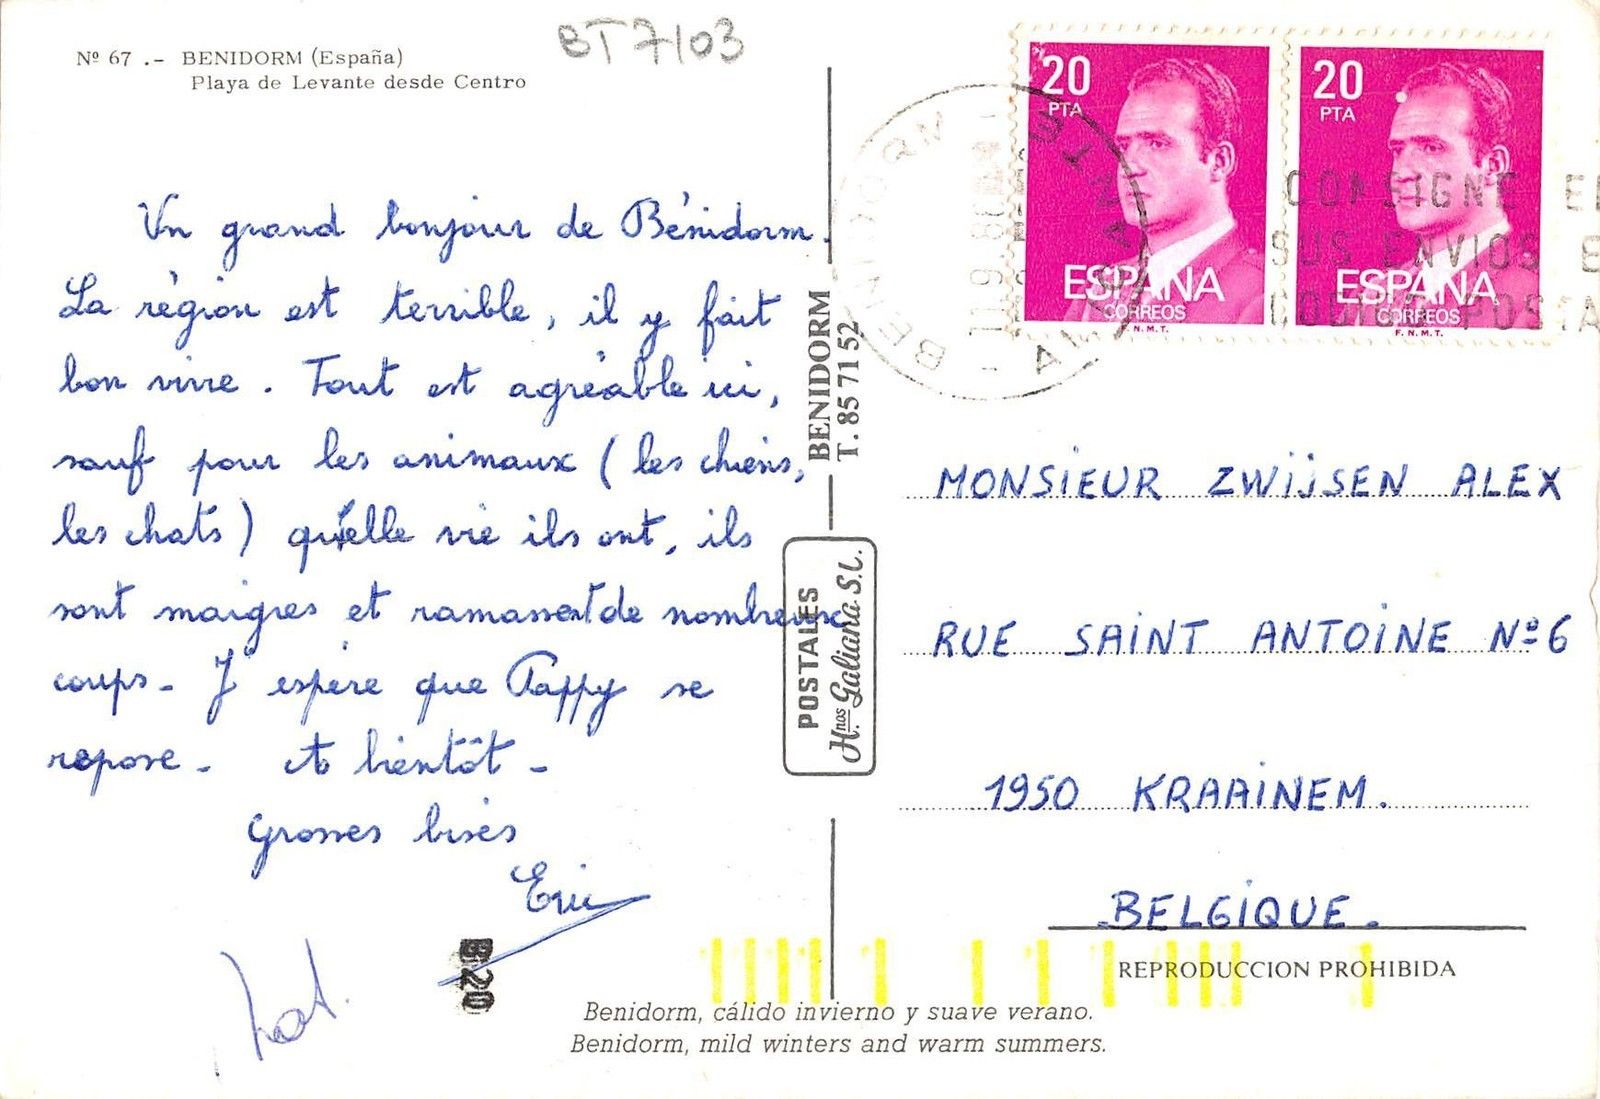 BT7/03
Nº 67 .- BENIDORM (España)
Playa de Levante desde Centro
Un grand bonjour de Bénidorm.
La région est terrible, il y fait
bon vivre. Tout est agréable ici,
sauf pour les animaux (les chiens,
les chats) quelle vie ils ont, ils
sont maigres et ramassent de nombreux
coups - J'espère que Pappy se
repose - A bientôt -
Grosses bises
Eric
B20
BENIDORM
T. 85 71 52
POSTALES
Hnos Galiana S.L.
20
PTA
ESPAÑA
CORREOS
F.N.M.T.
20
PTA
ESPAÑA
CORREOS
F.N.M.T.
BENIDORM - ALICANTE
CONSIGNE E
SUS ENVIOS E
CODIGO POSTA
MONSIEUR ZWIJSEN ALEX
RUE SAINT ANTOINE Nº6
1950 KRAAINEM.
BELGIQUE.
REPRODUCCION PROHIBIDA
Benidorm, cálido invierno y suave verano.
Benidorm, mild winters and warm summers.